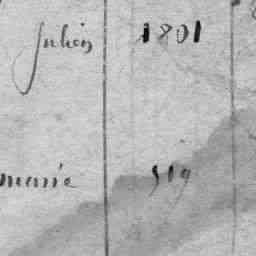 Julien 1801
marie 519